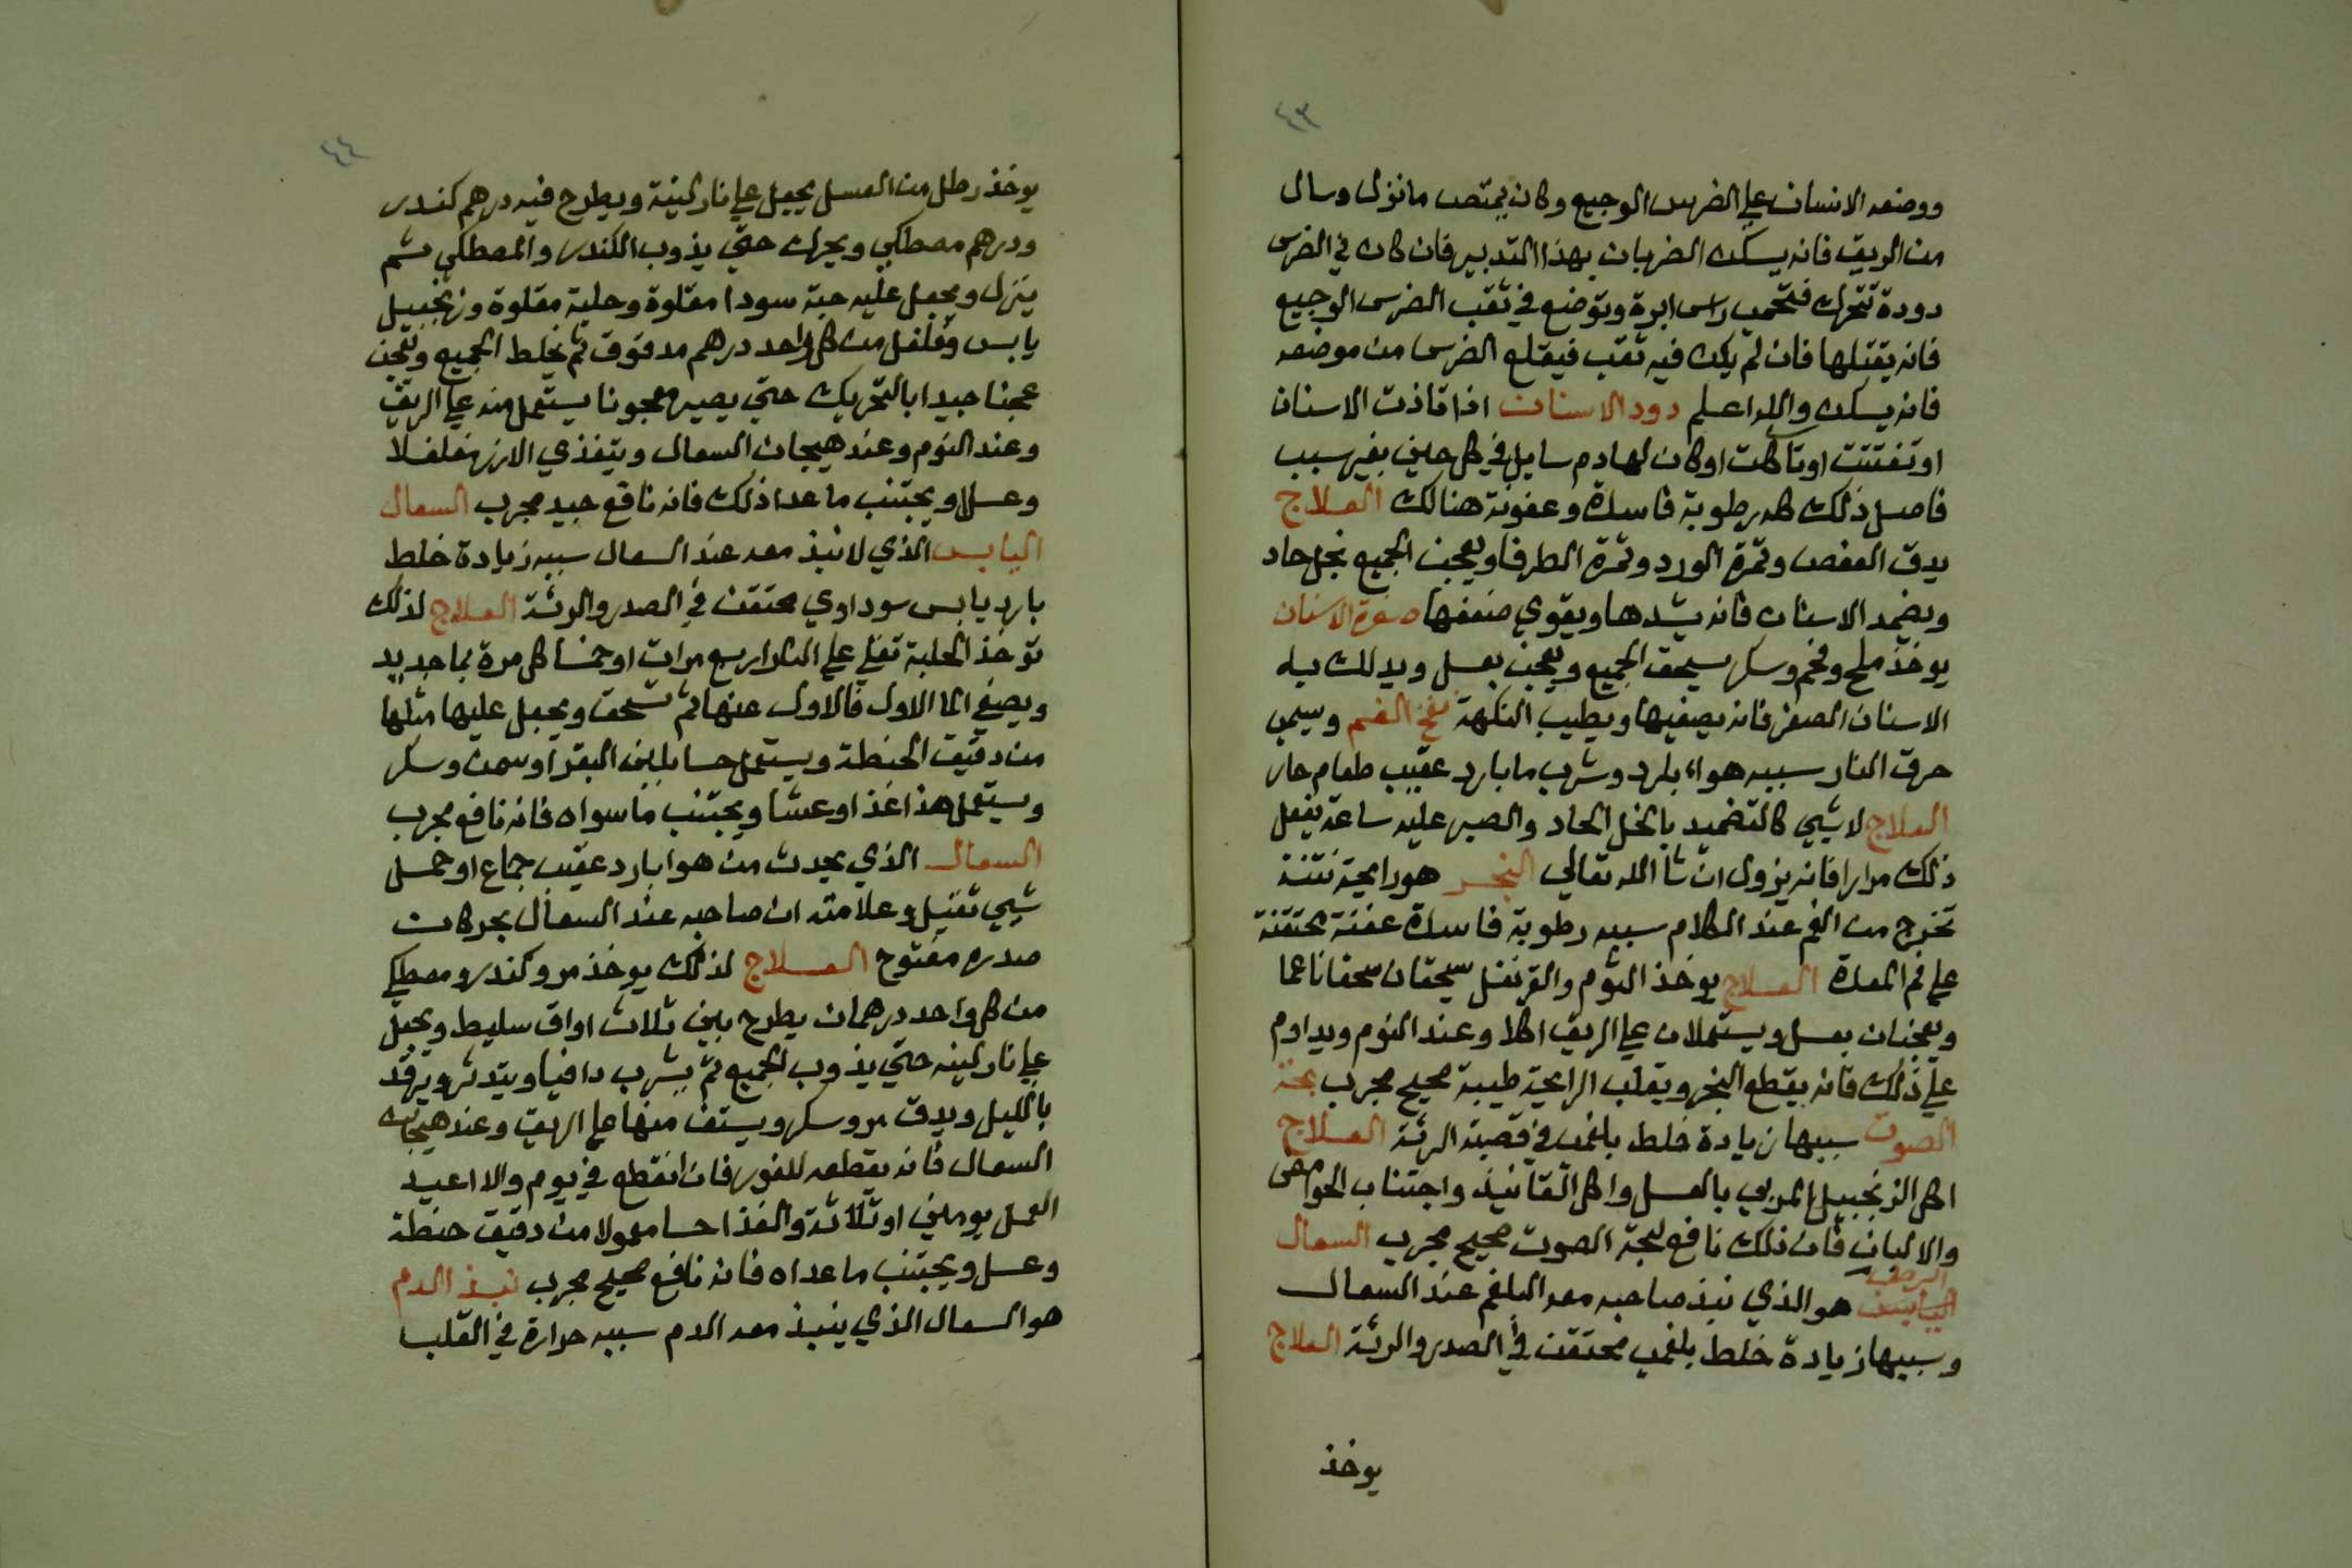 ٤٣
ووضعه الانسان علي الضرس الوجيع وكان يمتص ما نزل وسال
من الريق فانه يسكن الضربان بهذا التدبير فان كان في الضرس
دودة تتحرك فتحمي راس ابرة وتوضع في ثقب الضرس الوجيع
فانه يقتلها فان لم يكن فيه ثقب فيقلع الضرس من موضعه
فانه يسكن والله اعلم دود الاسنان اذا تاذت الاسنان
او تفتتت او تاكلت او كان لها دم سايل في كل حين بغير سبب
فاصل ذلك كله رطوبة فاسدة وعفونة هنالك العلاج
يدق العفص وثمرة الورد وثمرة الطرفا ويعجن الجميع بخل حاد
ويضمد الاسنان فانه يشدها ويقوي ضعفها صفرة الاسنان
يوخذ ملح وفحم وسكر يسحق الجميع ويعجن بعسل ويدلك به
الاسنان الصفر فانه يصفيها ويطيب النكهة نفخ الفم وسيمى
حرق النار سببه هواء بارد وشرب ما بارد عقيب طعام حار
العلاج لا شيي كالتضميد بالخل الحاد والصبر عليه ساعة يفعل
ذلك مرارا فانه يزول ان شا الله تعالي البخر هو رايحة نتنة
تخرج من الفم عند الكلام سببه رطوبة فاسدة عفنة محتقنة
علي فم المعدة العلاج يوخذ الثوم والقرنفل يسحقان سحقا ناعما
ويعجنان بعسل ويستعملان علي الريق اكلا وعند النوم ويداوم
علي ذلك فانه يقطع البخر ويقلب الرايحة طيبة صحيح مجرب بحة
الصوت سببها زيادة خلط بلغمي في قصبة الرئة العلاج
اكل الزنجبيل المربي بالعسل واكل القانيذ واجتناب الحوامض
والالبان فان ذلك نافع لبحة الصوت صحيح مجرب السعال
الرطب هو الذي نبذ صاحبه معه البلغم عند السعال
وسببها زيادة خلط بلغمي محتقن في الصدر والرئة العلاج
يوخذ
٤٤
يوخذ رطل من العسل يجعل علي نار لينة ويطرح فيه درهم كندر
ودرهم مصطكي ويحرك حتي يذوب الكندر والمصطكي ثم
ينزل ويجعل عليه حبة سودا مقلوة وحلبة مقلوة وزنجبيل
يابس وفلفل من كل واحد درهم مدقوق ثم يخلط الجميع ويعجن
عجنا جيدا بالتحريك حتي يصير معجونا يستعمل منه علي الريق
وعند النوم وعند هيجان السعال ويتغذي الارز مفلفلا
وعسلا ويجتنب ما عدا ذلك فانه نافع جيد مجرب السعال
اليابس الذي لا نبذ معه عند السعال سببه زيادة خلط
بارد يابس سوداوي محتقن في الصدر والرئة العلاج لذلك
توخذ الحلبة تغلي علي النار اربع مرات او خمسا كل مرة بما جديد
ويصفي الما الاول فالاول عنها ثم تسحق ويجعل عليها مثلها
من دقيق الحنطة ويستعمل حسا بلبن البقر او سمن وسكر
ويستعمل هذا غذا وعشا ويجتنب ما سواه فانه نافع مجرب
السعال الذي يحدث من هوا بارد عقيب جماع او حمل
شيي ثقيل وعلامته ان صاحبه عند السعال يجد كان
صدره مفتوح العلاج لذلك يوخذ مر وكندر ومصطكي
من كل واحد درهمان يطرح بين ثلاث اواق سليط ويجعل
علي نار لينه حتي يذوب الجميع ثم يشرب دافيا ويتدثر ويرقد
بالليل ويدق مر وسكر ويستف منها علي الريق وعند هيجانه
السعال فانه يقطعه للفور فان انقطع في يوم والا اعيد
العمل يومين او ثلاثة والغذا حسا معمولا من دقيق حنطة
وعسل ويجتنب ما عداه فانه نافع صحيح مجرب نبذ الدم
هو السعال الذي ينبذ معه الدم سببه حرارة في القلب